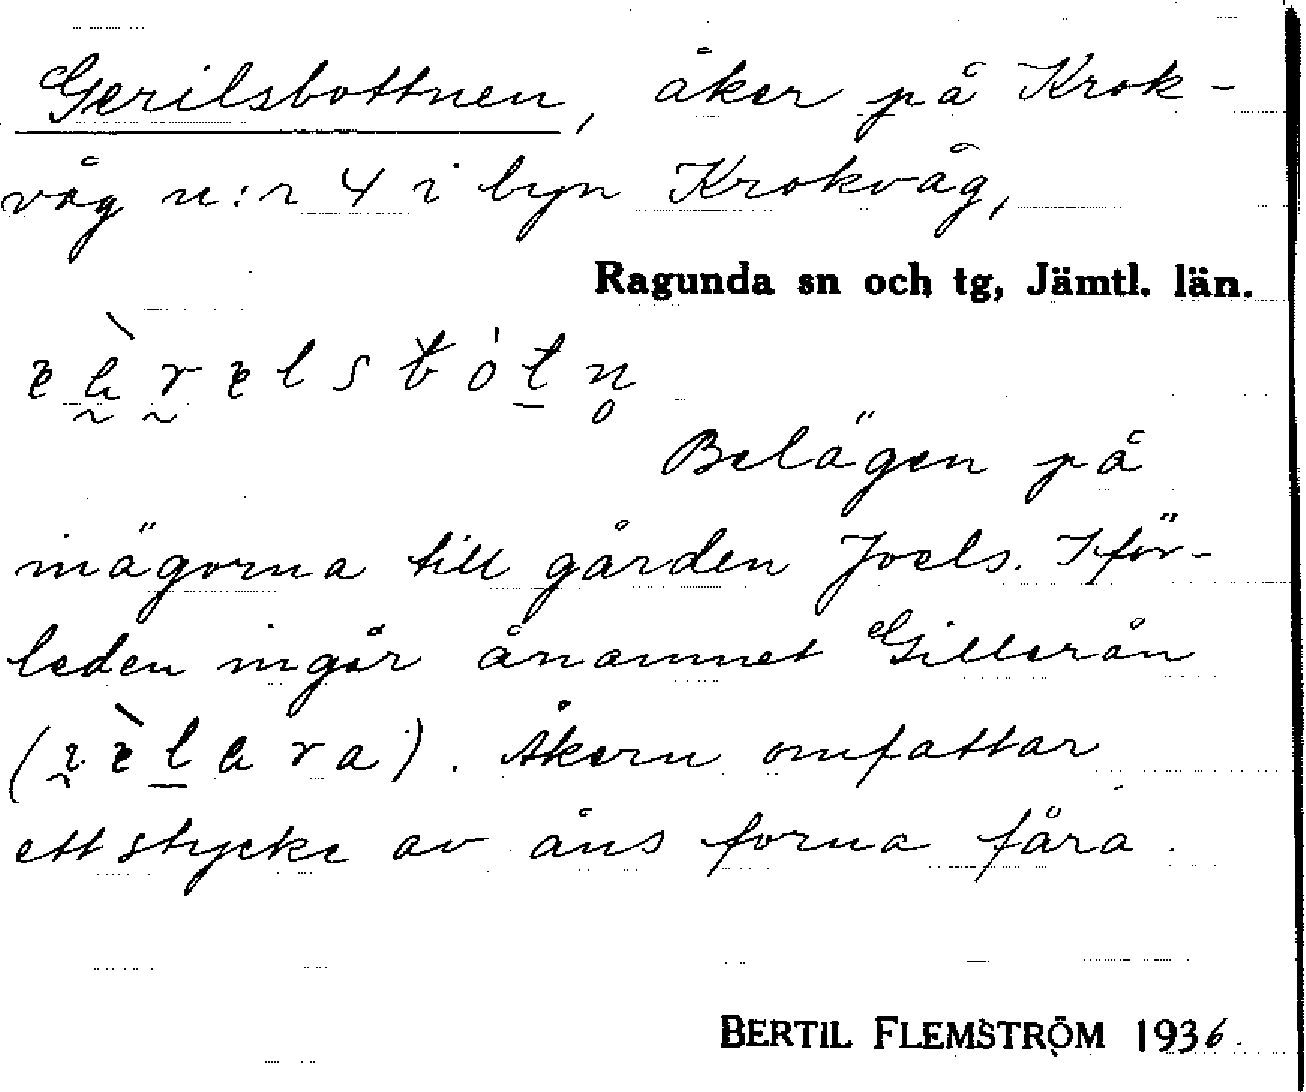 Gerilsbottnen, åker på Krok-
våg n:r 4 i byn Krokvåg,
Ragunda sn och tg, Jämtl. län.
Belägen på
inägorna till gården Joels. I för-
leden ingår ånamnet Gillerån
Åkern omfattar
ett stycke av åns forna fåra.
BERTIL FLEMSTRÖM 1936.